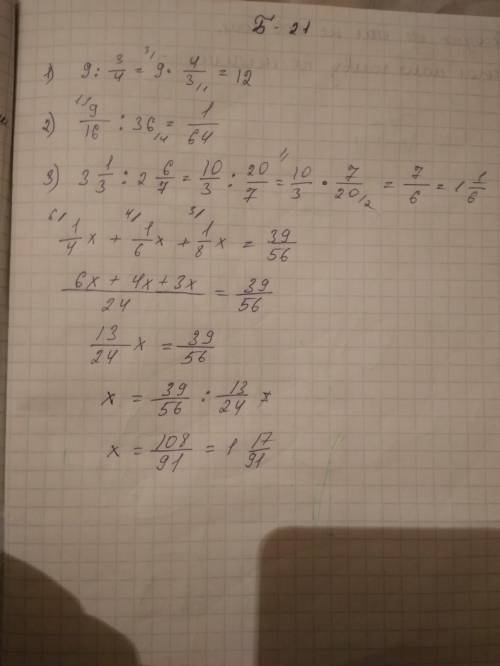 Б-21
1) 9 : 3/4 = 9 · 4/3 = 12
2) 9/16 : 36 = 1/64
3) 3 1/3 : 2 6/7 = 10/3 : 20/7 = 10/3 · 7/20 = 7/6 = 1 1/6
1/4 x + 1/6 x + 1/8 x = 39/56
6x + 4x + 3x / 24 = 39/56
13/24 x = 39/56
x = 39/56 : 13/24
x = 108/91 = 1 17/91